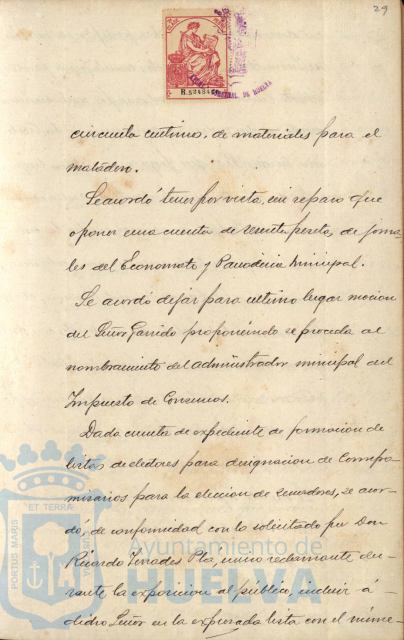 29
R.5248464
circuenta centimos, de materiales para el
matadero.
Se acordó tener por vista, sin reparo que
oponer una cuenta de treinta pesetas, de jorna-
les del Economato y Panaderia Municipal.
Se acordó dejar para ultimo lugar mocion
del Señor Garrido proponiendo se proceda al
nombramiento del administrador municipal del
Impuesto de Consumos.
Dada cuenta de expediente de formacion de
listas de electores para designacion de Compro-
misarios para la eleccion de Senadores, se acor-
dó, de conformidad con lo solicitado por Don
Ricardo Terrades Pla, unico reclamante du-
rante la exposicion al público, incluir á
dicho Señor en la expresada lista con el núme-
PORTUS MARIS ET TERRAE
Ayuntamiento de
HUELVA